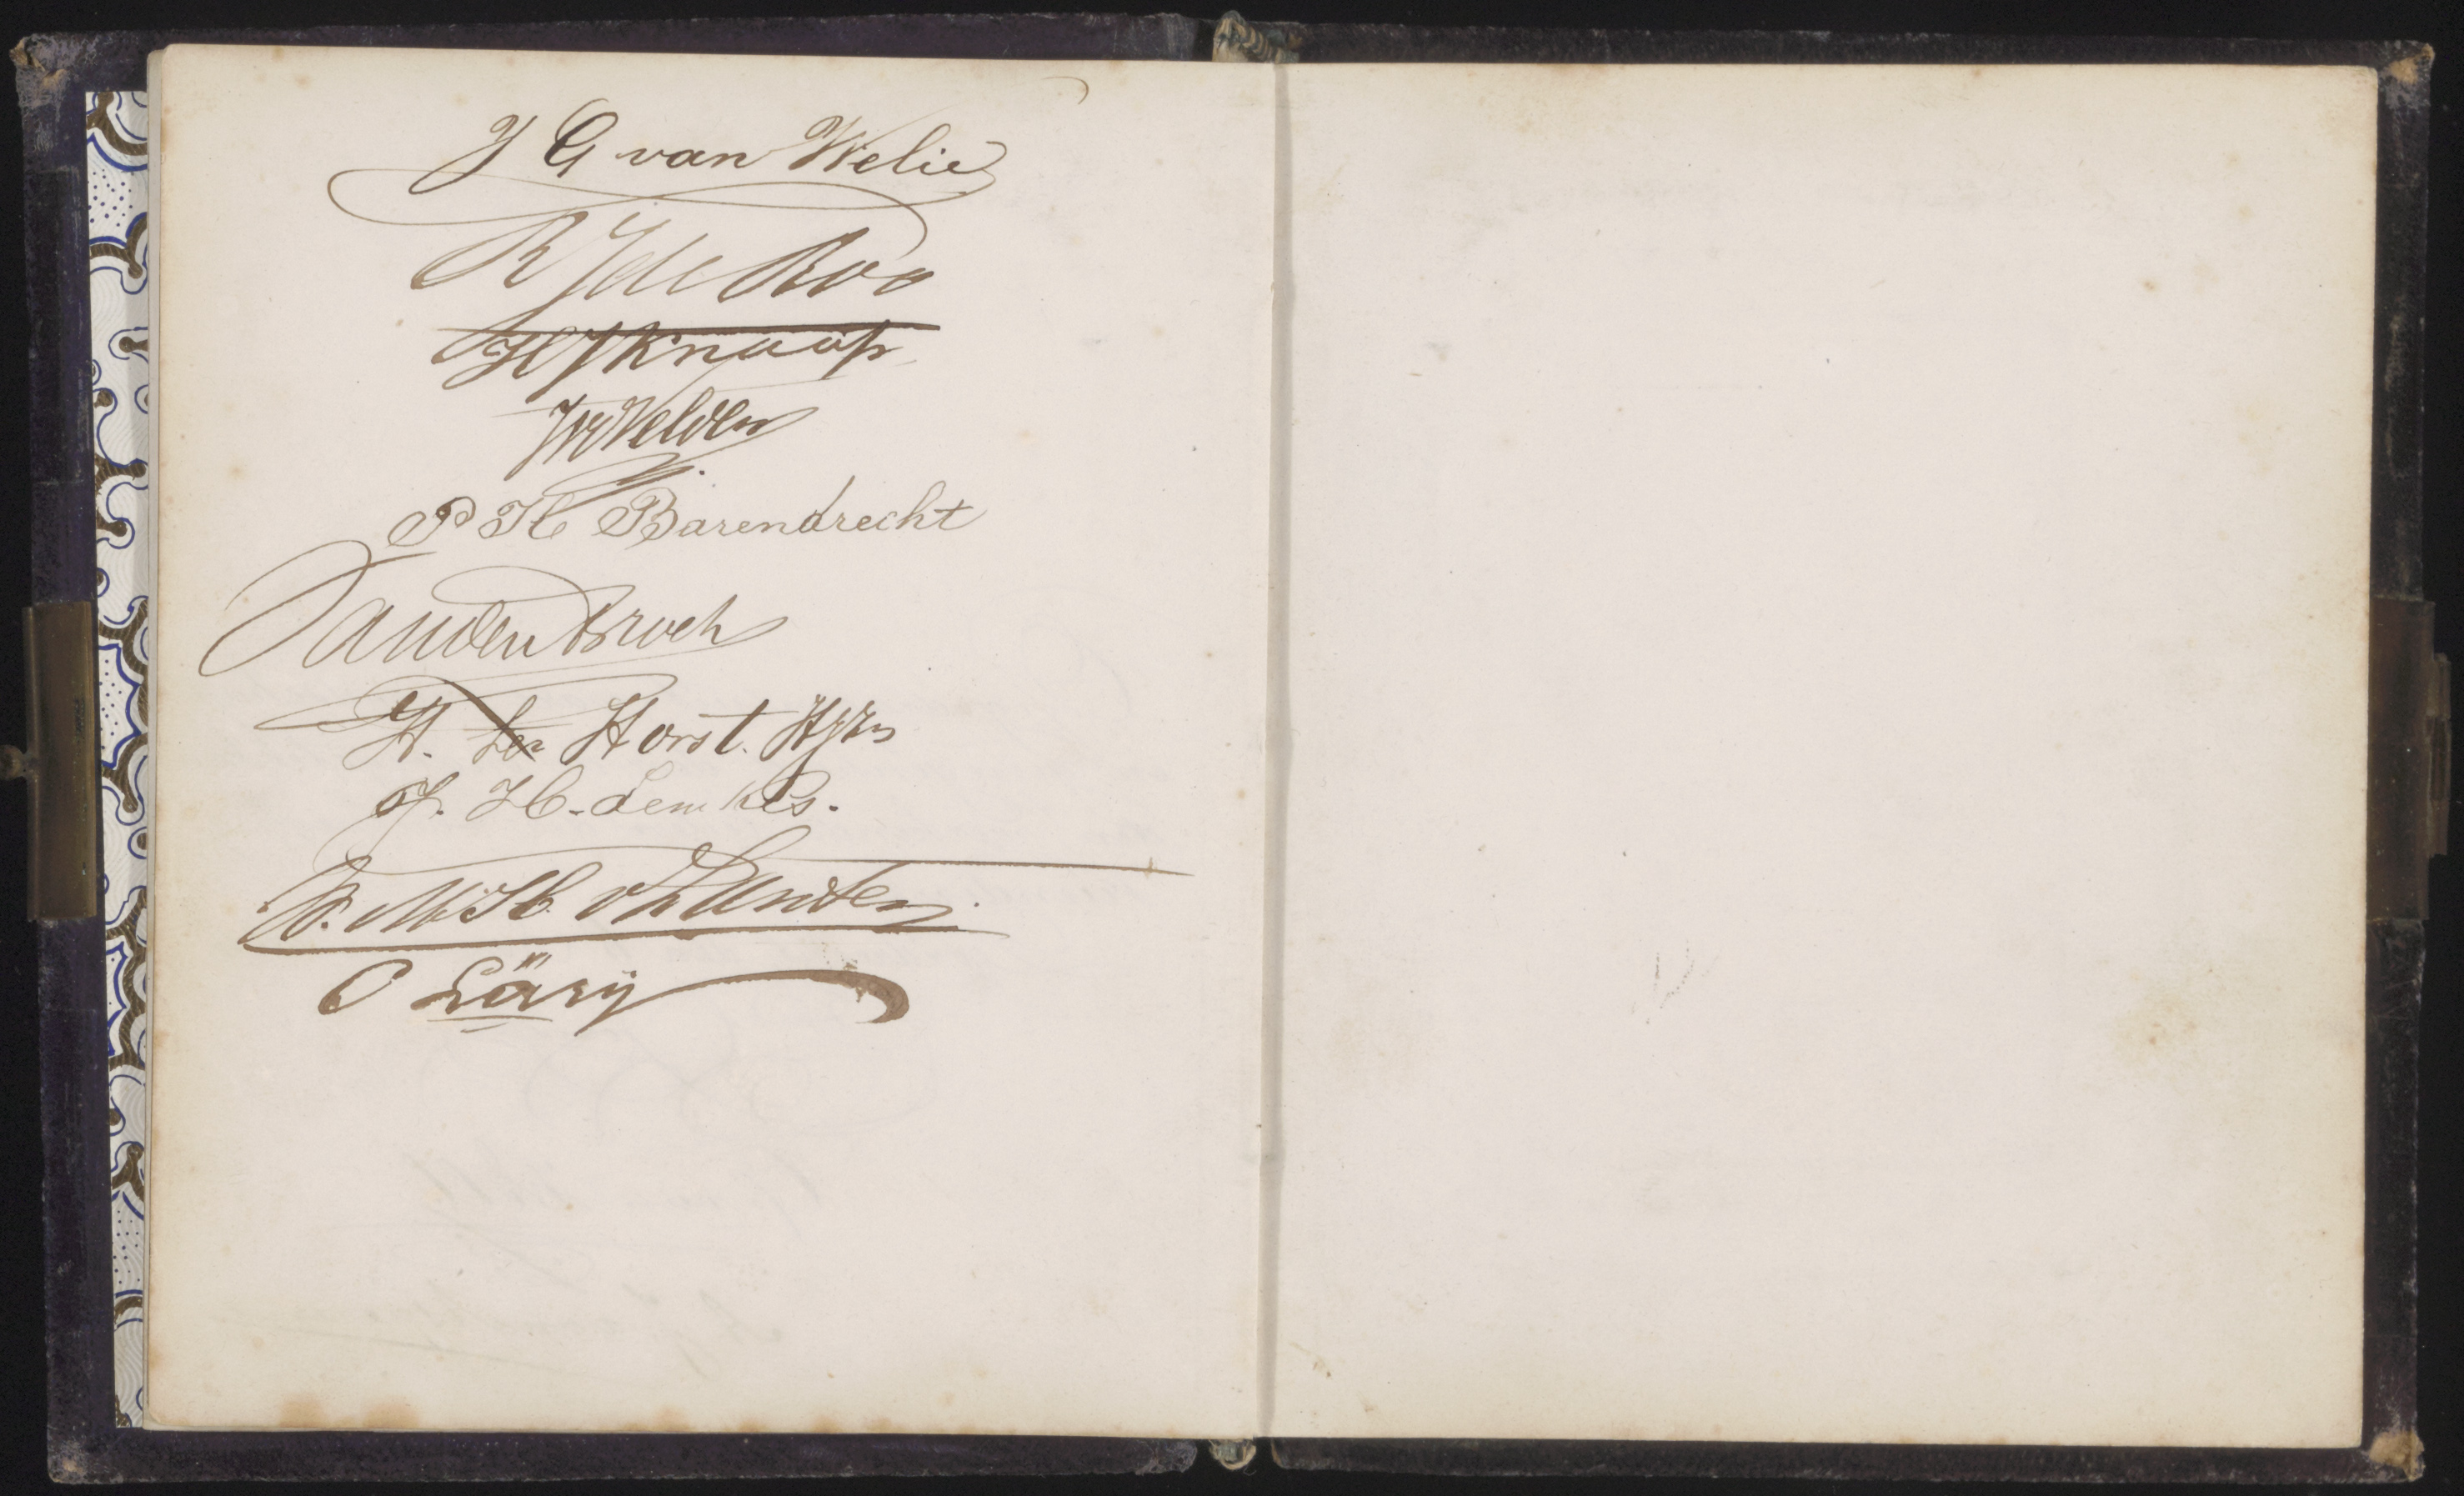 J G van Welie
R J de Roo
H J Knaap
Velden
P H Barendrecht
van den Broek
H. ter Horst. Hzn
J. H. Lemkes.
P. M H. v Zanten
C Läry